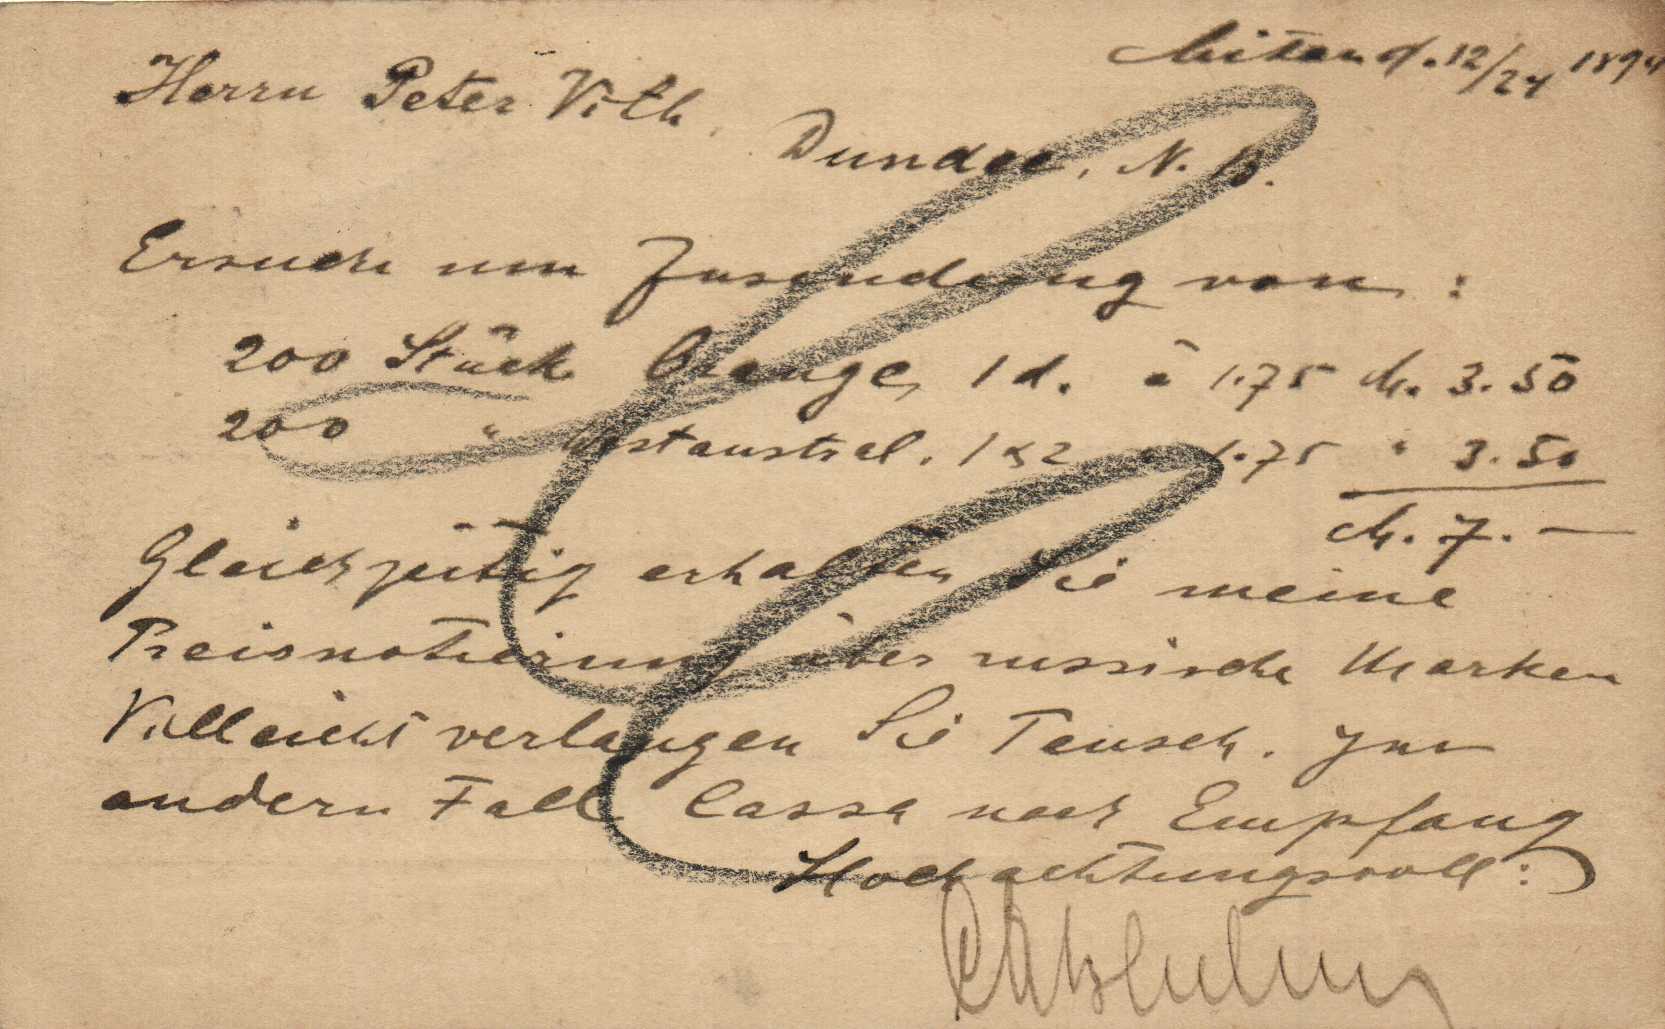 Mitau d. 12/24 1894
Herrn Peter Vith.
Dundee, N. B.
Ersuche um Zusendung von :
200 Stück Orange, 1 d. à 1.75 M. 3.50
200 " Westaustral. 1 & 2 " 1.75 " 3.50
M. 7. —
Gleichzeitig erhalten Sie meine
Preisnotierung über russische Marken
Vielleicht verlangen Sie Tausch. Im
andern Fall Cassa nach Empfang
Hochachtungsvoll :